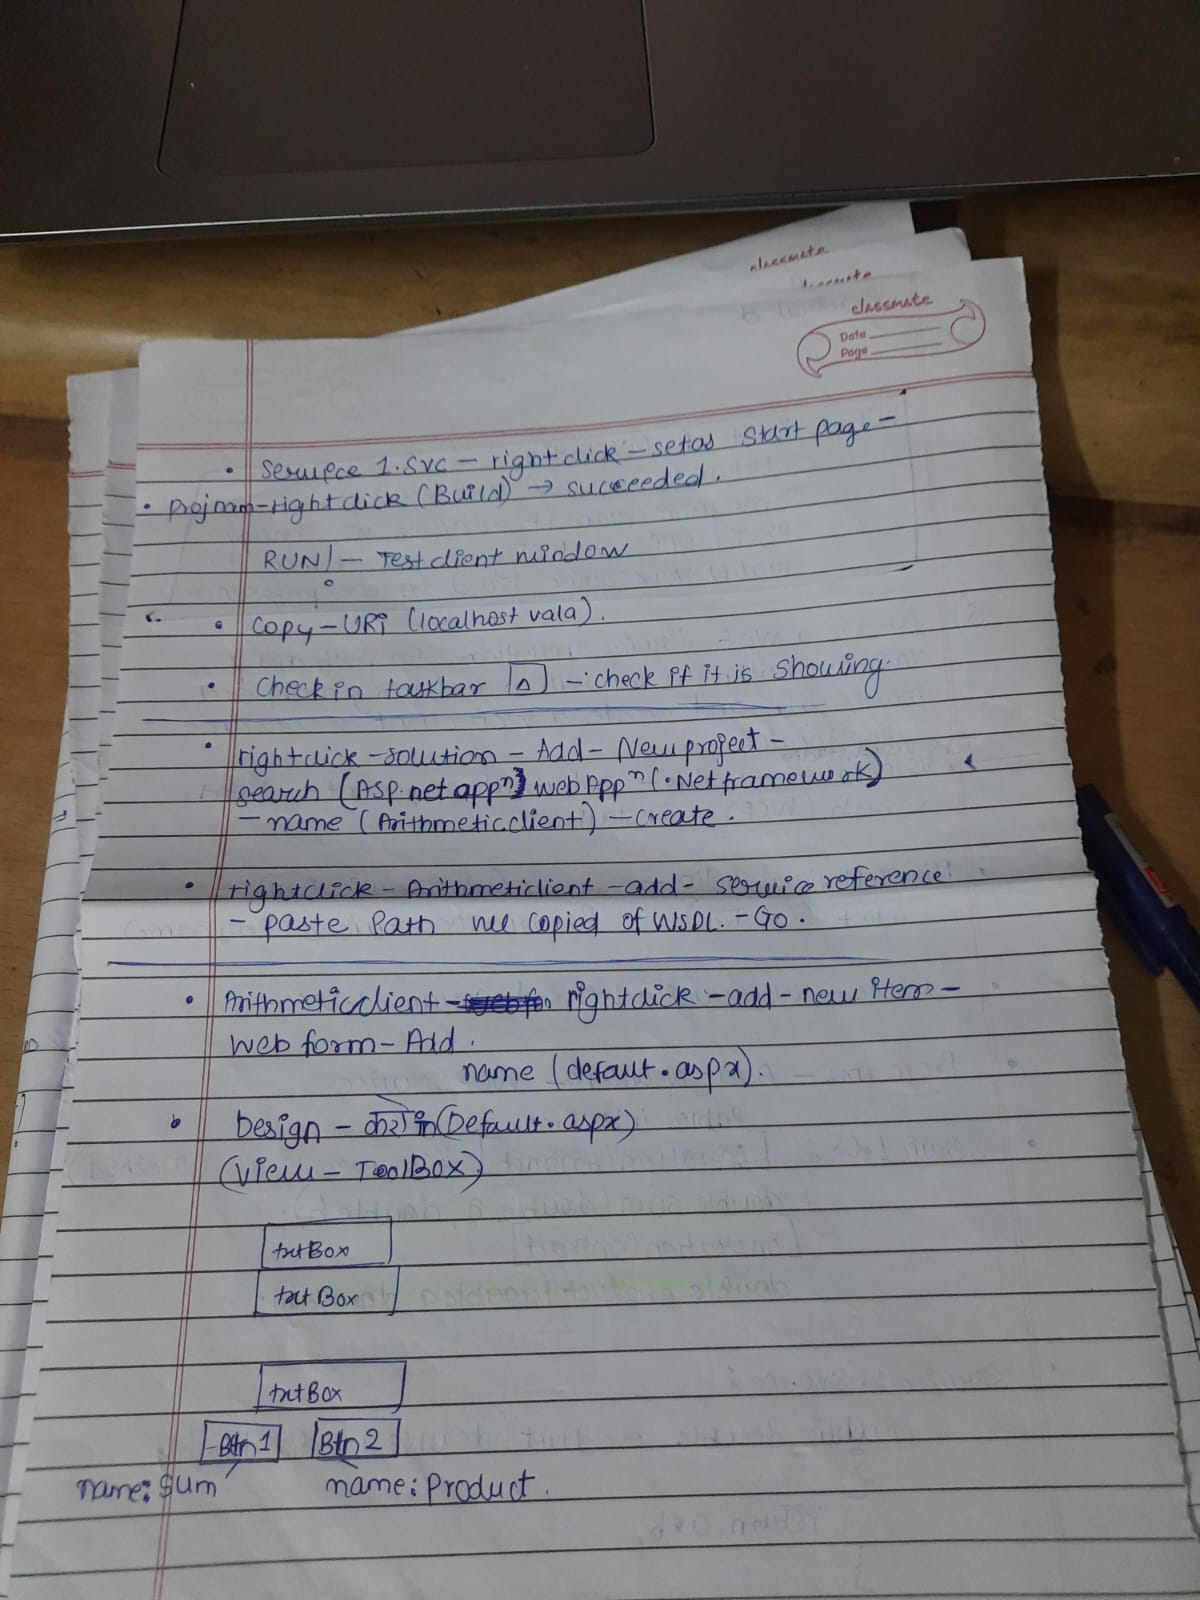 classmate
classmate
Date
Page
• Service 1.svc - right click - set as Start page -
• Projnam - right click (Build) → succeeded.
RUN/ - Test client window
• Copy - URI (localhost vala).
• Check in taskbar - check if it is showing.
• right click - solution - Add - New project -
search (ASP.net appn) web Appn (.Net framework)
- name (Arithmeticclient) - Create.
• right click - Arithmeticlient - add - service reference
- paste Path we copied of WSDL. - Go.
• Arithmeticclient - right click - add - new item -
web form - Add.
name (default.aspx).
Design - in (Default.aspx)
(View - ToolBox)
txtBox
txtBox
txtBox
Btn1 Btn2
name: Sum name: Product.